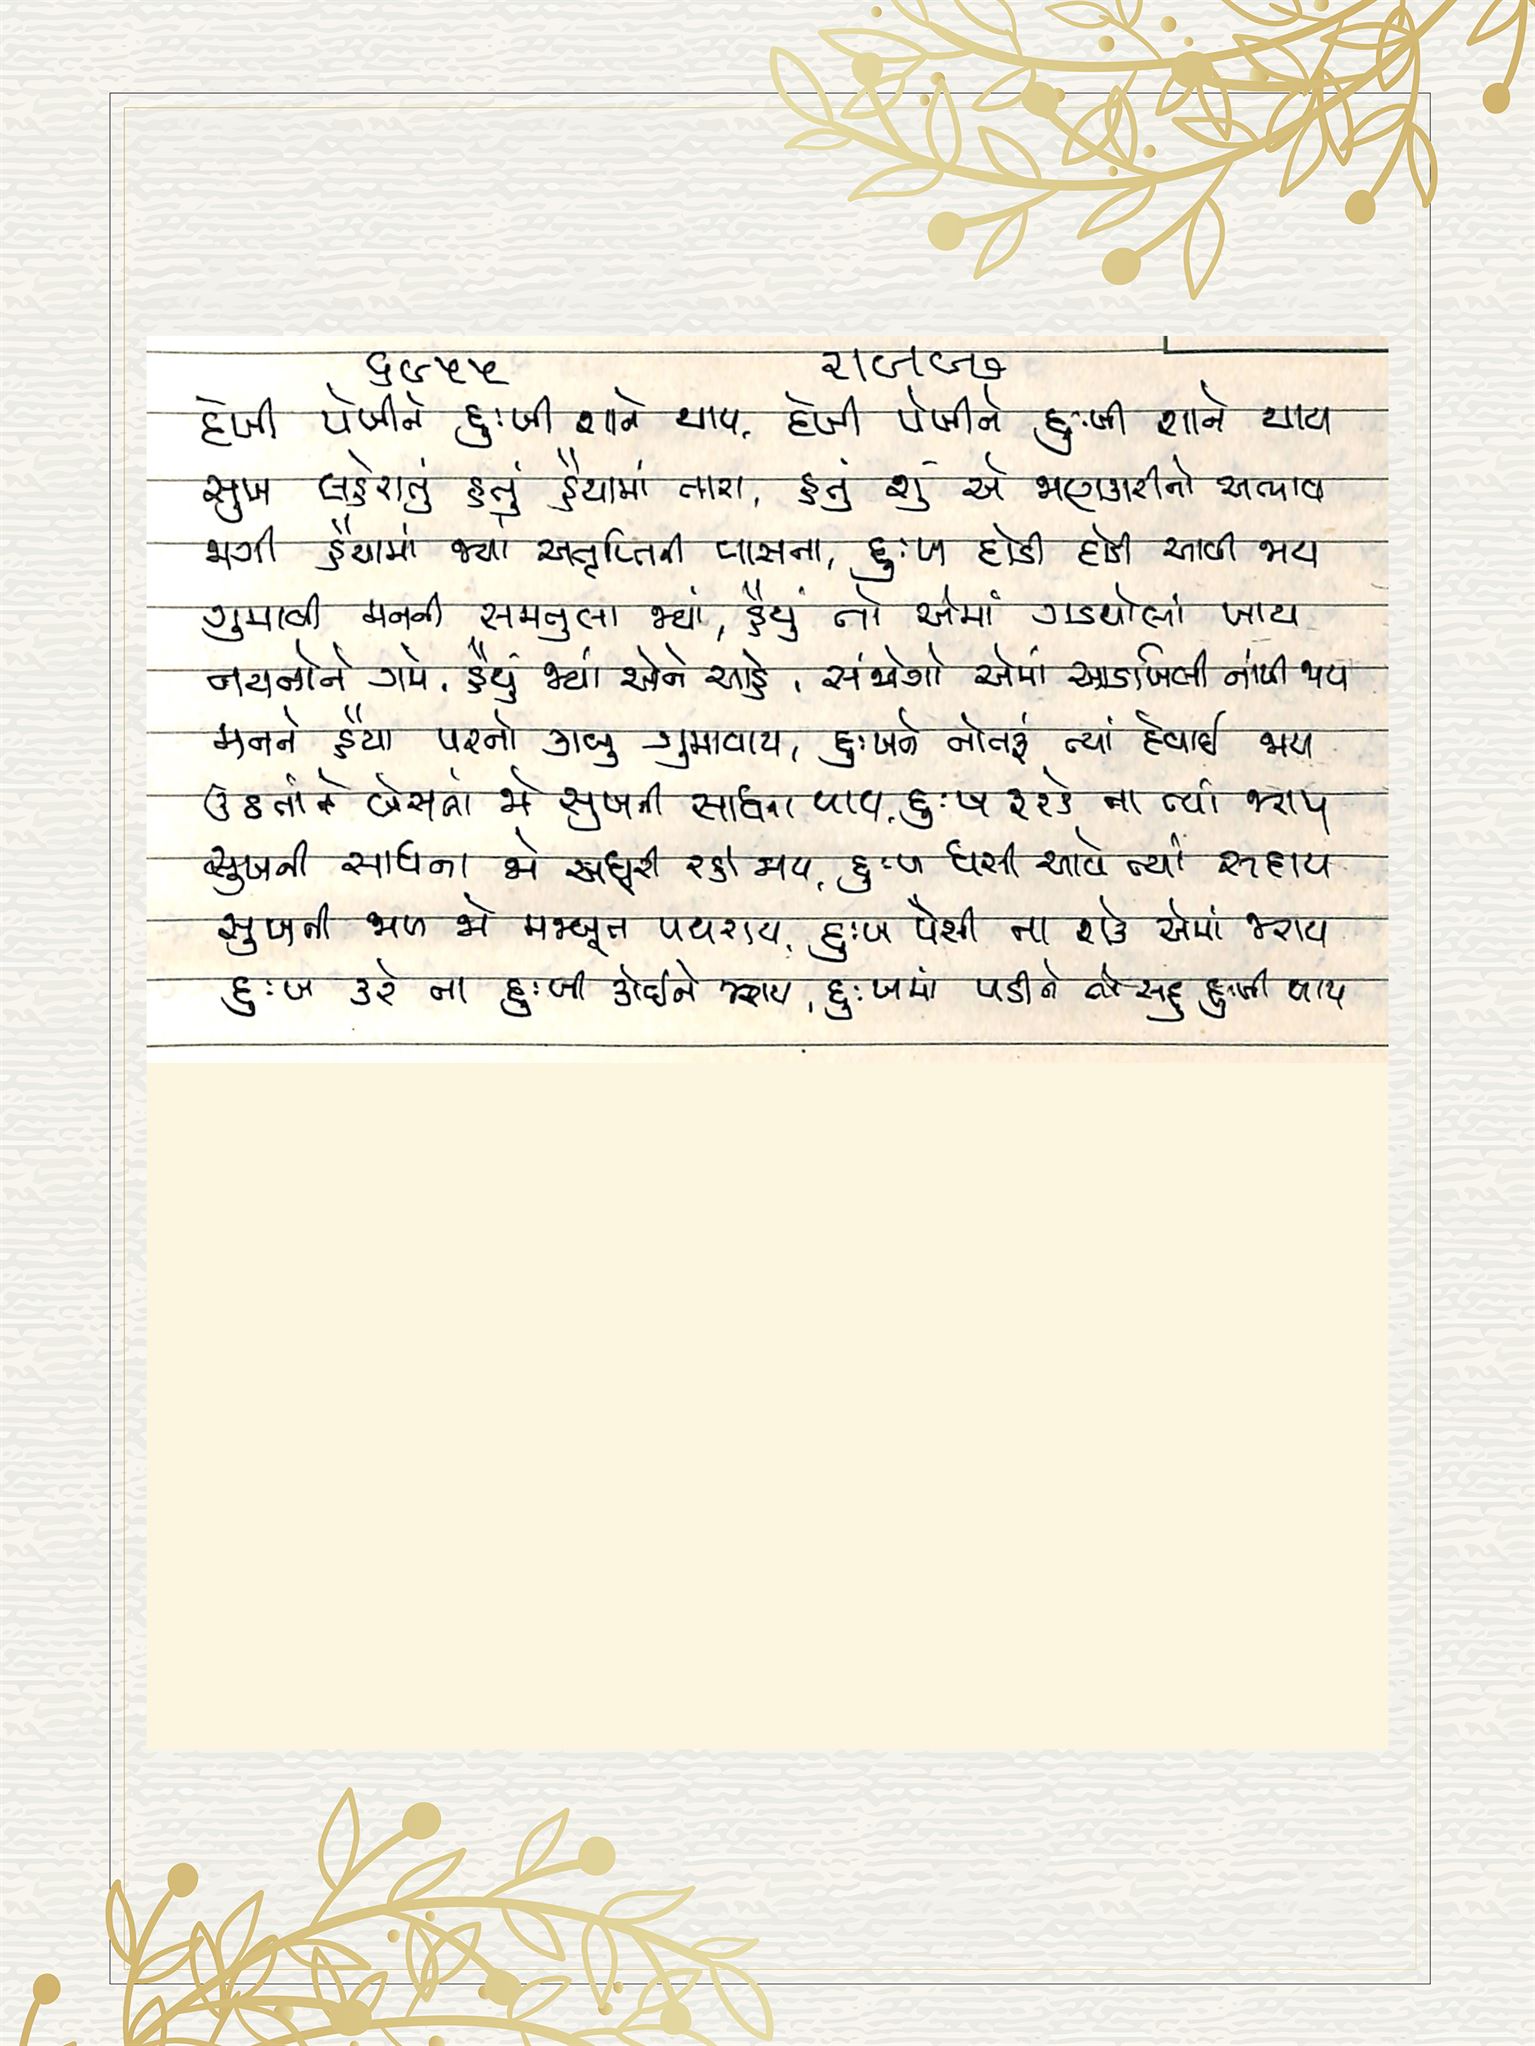 ૬૯૫૫ ૨ાજ૯૭
દેખી પેખીને દુઃખી શાને થાય, દેખી પેખીને દુઃખી શાને થાય
સુખ લહેરાતું હતું હૈયામાં તારા, હતું શું એ ભણકારીનો અભાવ
જાગી હૈયામાં જ્યાં અતૃપ્તિની વાસના, દુઃખ દોડી દોડી આવી જાય
ગુમાવી મનની સમતુલા જ્યાં, હૈયું તો એમાં ગડથોલાં ખાય
નયનોને ગમે, હૈયું જ્યાં એને ચાહે, સંજોગો એમાં આડખિલી નાંખી જાય
મનને હૈયા પરનો કાબુ ગુમાવાય, દુઃખને નોતરૂં ત્યાં દેવાઈ જાય
ઉઠતાં ને બેસતાં જો સુખની સાધના થાય, દુઃખ ફરકે ના ત્યાં જરાય
સુખની સાધના જો અધૂરી રહી જાય, દુઃખ ધસી આવે ત્યાં સદાય
સુખની જાળ જો મજબૂત પથરાય, દુઃખ પૈસી ના શકે એમાં જરાય
દુઃખ કરે ના દુઃખી કોઈને જરાય, દુઃખમાં પડીને સહુ દુઃખી થાય